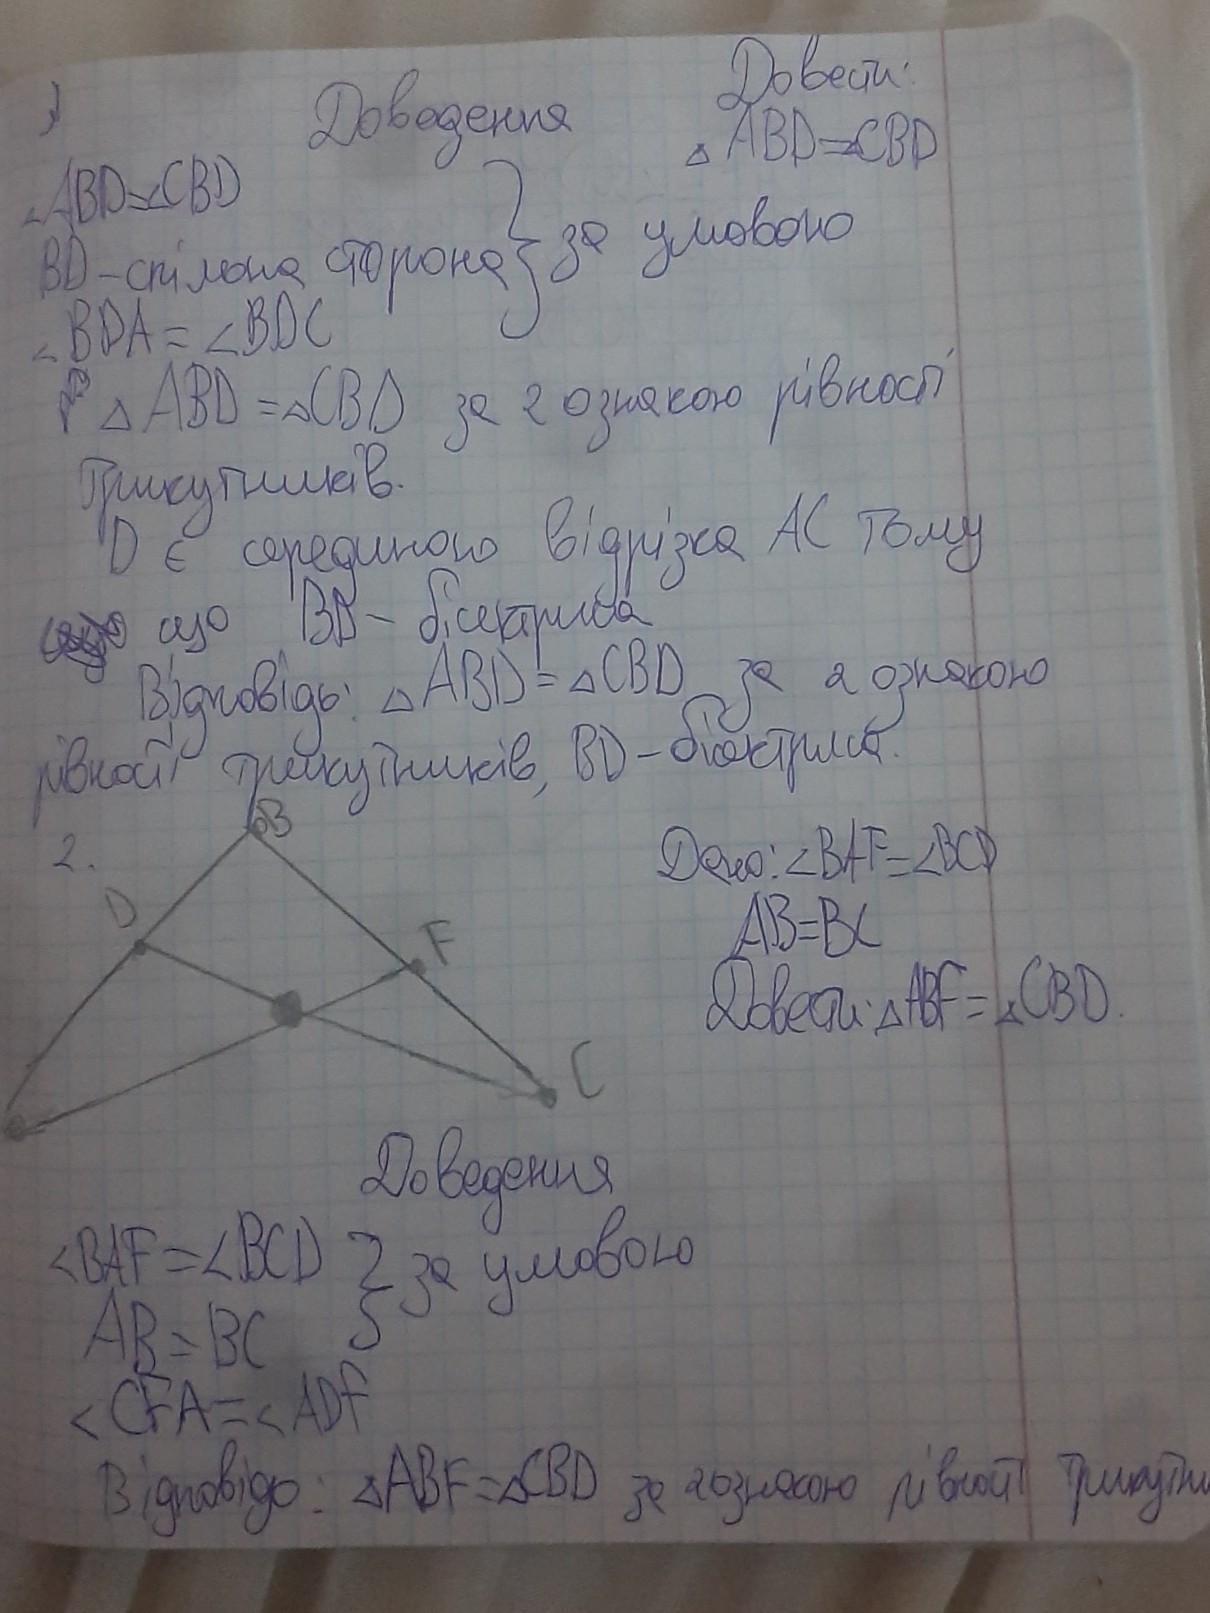 1
Доведення
Довести:
△ABD=△CBD
∠ABD=∠CBD
BD-спільна сторона } за умовою
∠BDA=∠BDC
△ABD=△CBD за 2 ознакою рівності
трикутників.
D є серединою відрізка AC тому
що BD-бісектриса
Відповідь: △ABD=△CBD за 2 ознакою
рівності трикутників, BD-бісектриса.
2.
B
D
F
C
Дано: ∠BAF=∠BCD
AB=BC
Довести: △ABF=△CBD.
Доведення
∠BAF=∠BCD } за умовою
AB=BC
∠CFA=∠ADF
Відповідь: △ABF=△CBD за 2 ознакою рівності